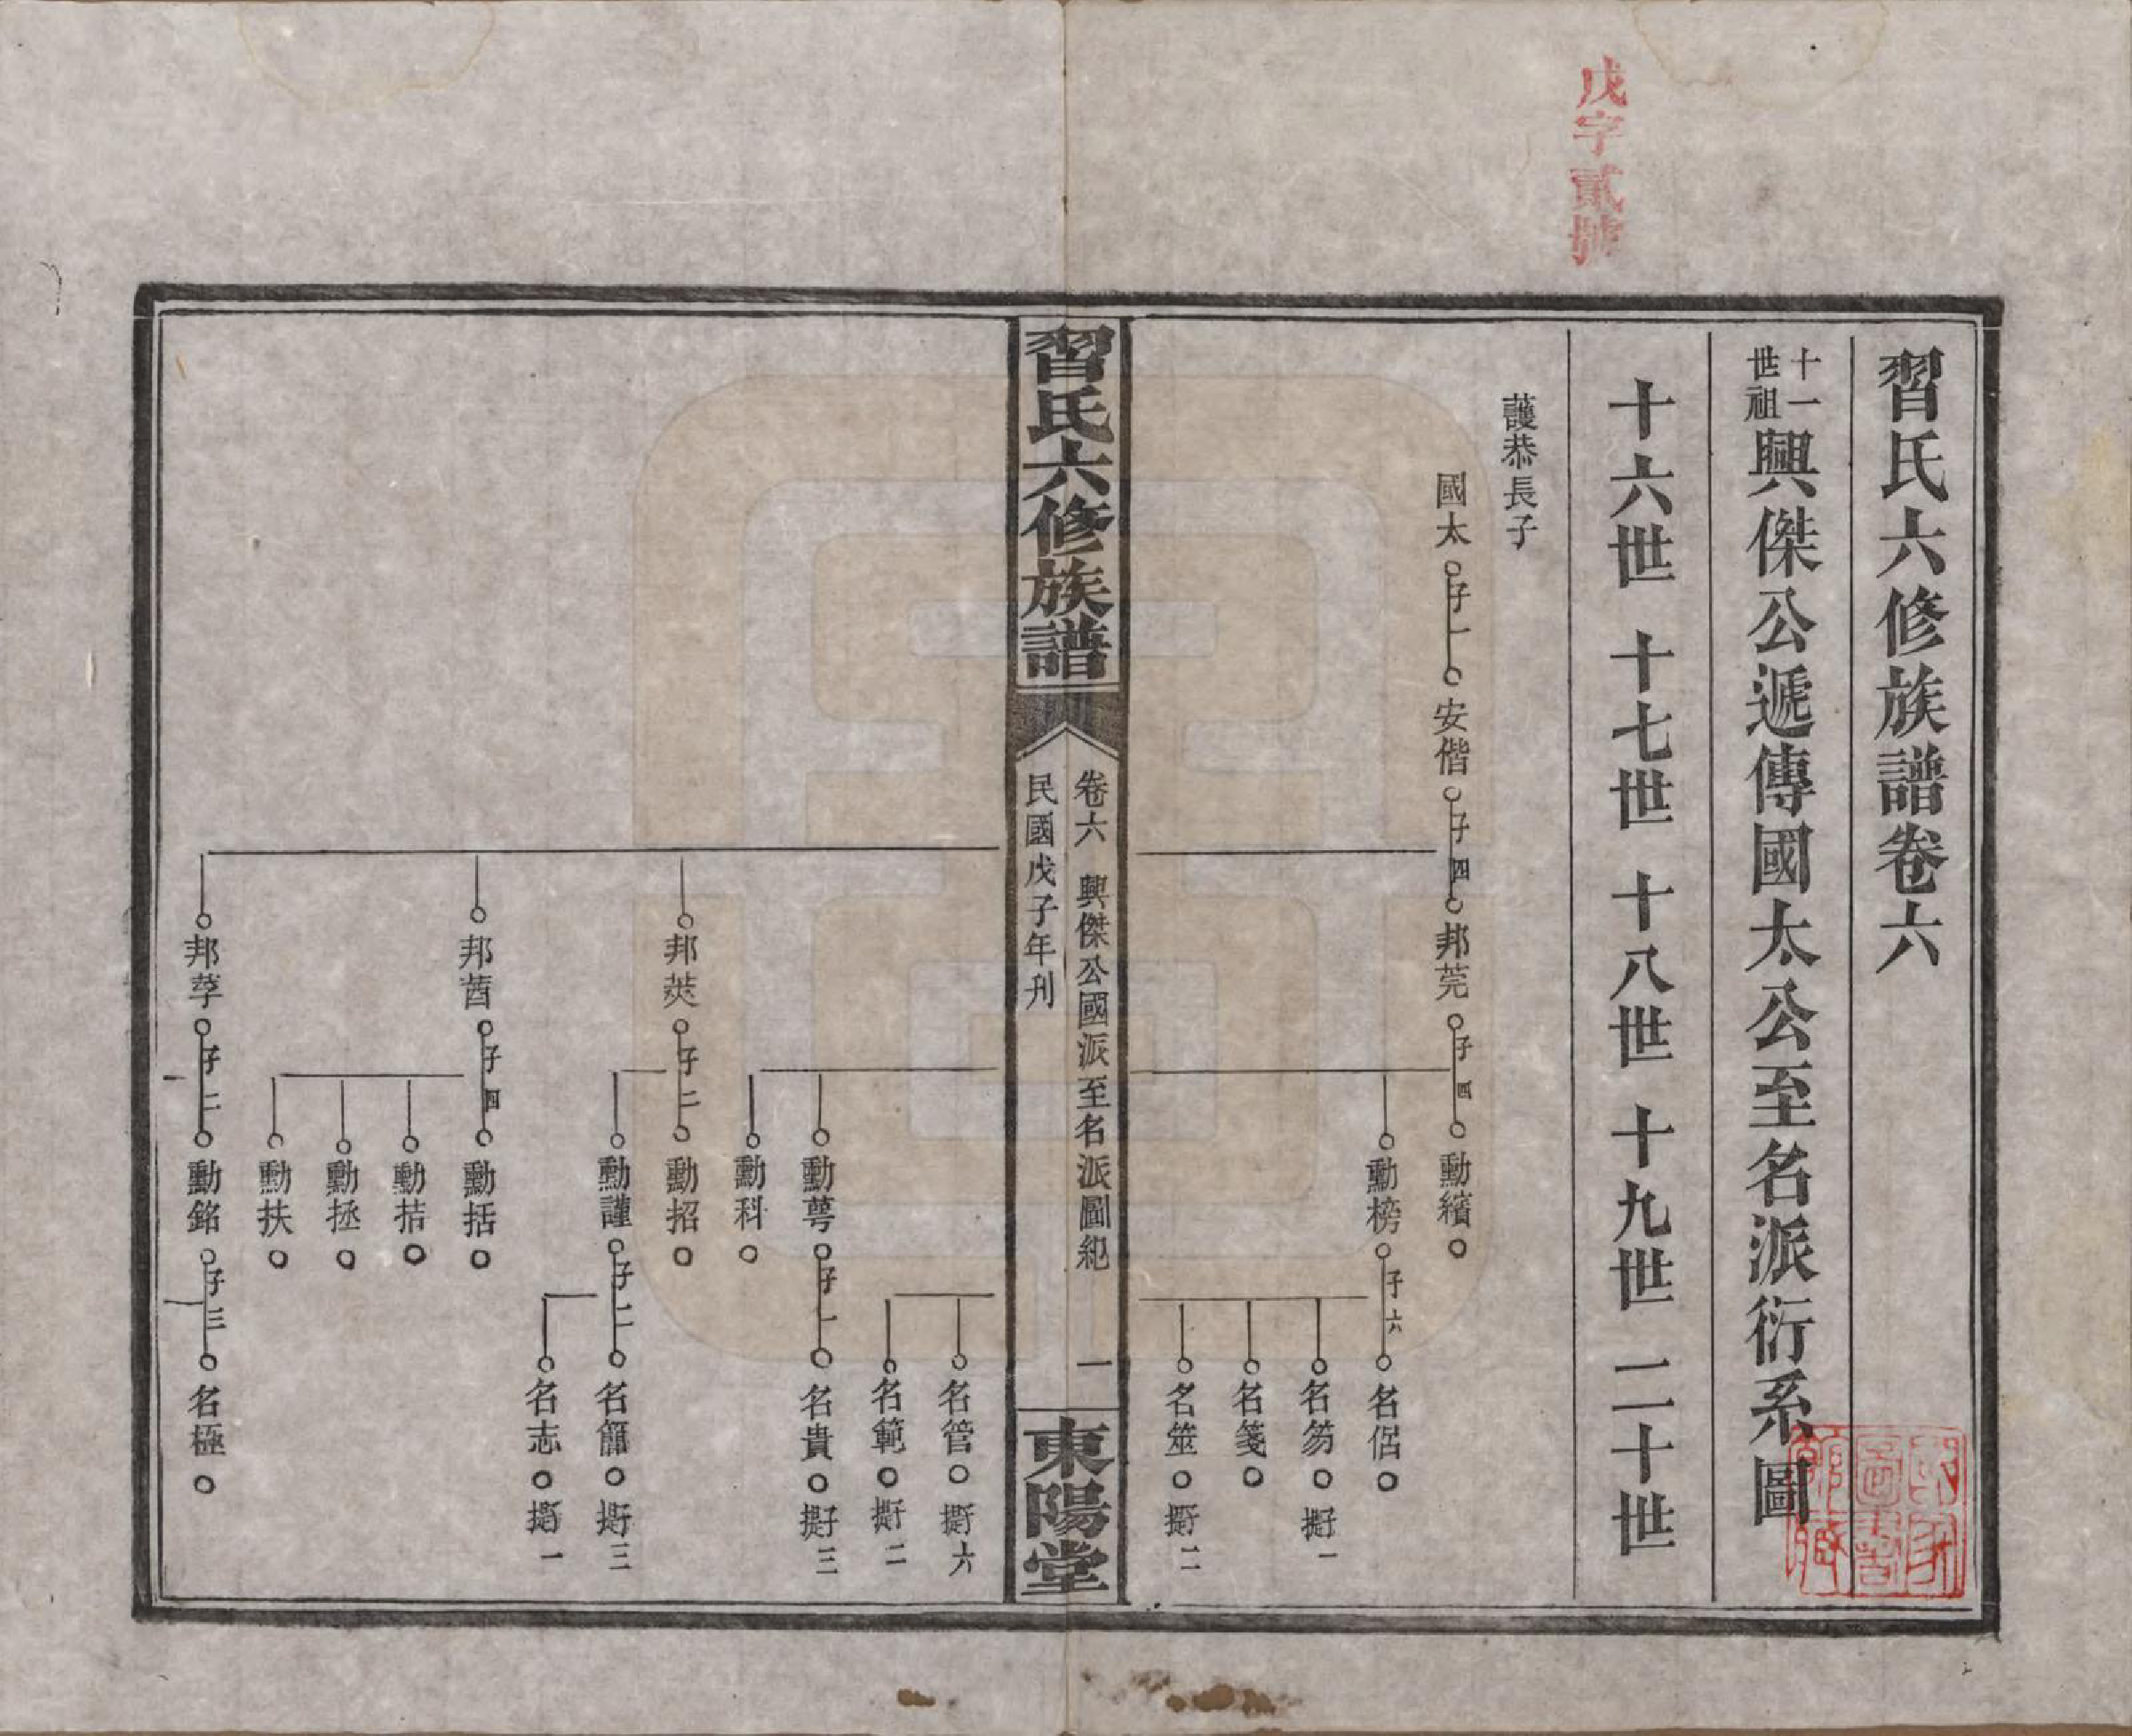 戊字貳號
習氏六修族譜卷六
十一世祖興傑公遞傳國太公至名派衍系圖
十六世 十七世 十八世 十九世 二十世
護恭長子
國太 子一 安偕 子四 邦莞 子四 勳繽
勳榜 子六 名侶
名笏 撫子一
名箋
名筮 撫子二
習氏六修族譜
卷六 興傑公國派至名派圖紀 一
民國戊子年刊
東陽堂
名管 撫子六
名範 撫子二
勳萼 子一 名貴 撫子三
勳科
邦莢 子二 勳招
勳謹 子二 名簠 撫子三
名志 撫子一
邦莤 子四 勳括
勳桔
勳拯
勳扶
邦莩 子二 勳銘 子三 名極